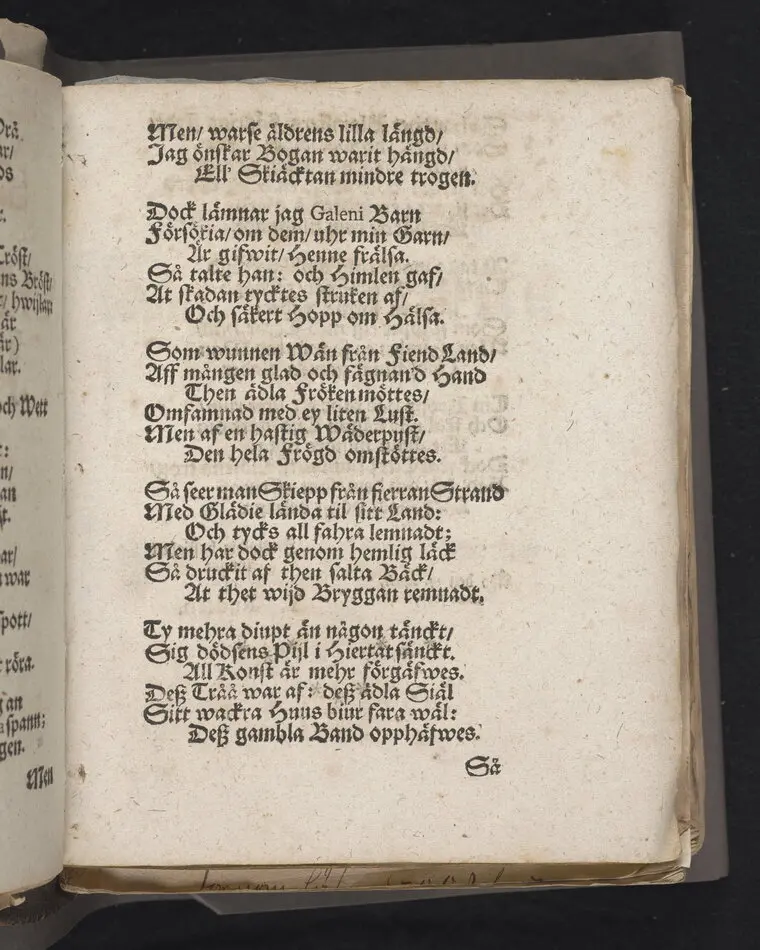 Men/ warse äldrens lilla längd/
Jag önskar Bogan warit hängd/
Ell' Skiäcktan mindre trogen.
Dock lämnar jag Galeni Barn
Försökia/ om dem/ uhr min Garn/
Är gifwit/ Henne frälsa.
Så talte han: och Himlen gaf/
At skadan tycktes struken af/
Och säkert Hopp om Hälsa.
Som wunnen Wän från Fiend Land/
Aff mången glad och fägnan'd Hand
Then ädla Fröken möttes/
Omfamnad med ey liten Lust.
Men af en hastig Wäderpust/
Den hela Frögd omstöttes.
Så seer man Skiepp från fierran Strand
Med Glädie lända til sitt Land:
Och tycks all fahra lemnadt;
Men har dock genom hemlig läck
Så druckit af then salta Bäck/
At thet wijd Bryggan remnadt.
Ty mehra diupt än någon tänckt/
Sig dödsens Pijl i Hiertat sänckt.
All Konst är mehr förgäfwes.
Deß Tråå war af: deß ädla Siäl
Sitt wackra Huus biur fara wäl:
Deß gambla Band opphäfwes.
Så
ar/
r.
Tröst/
ns Bröst/
/ hwijlan
är
är)
lar.
och Wett
t:
n/
an
ar/
war
spott/
röra.
an
spann;
gen.
Men